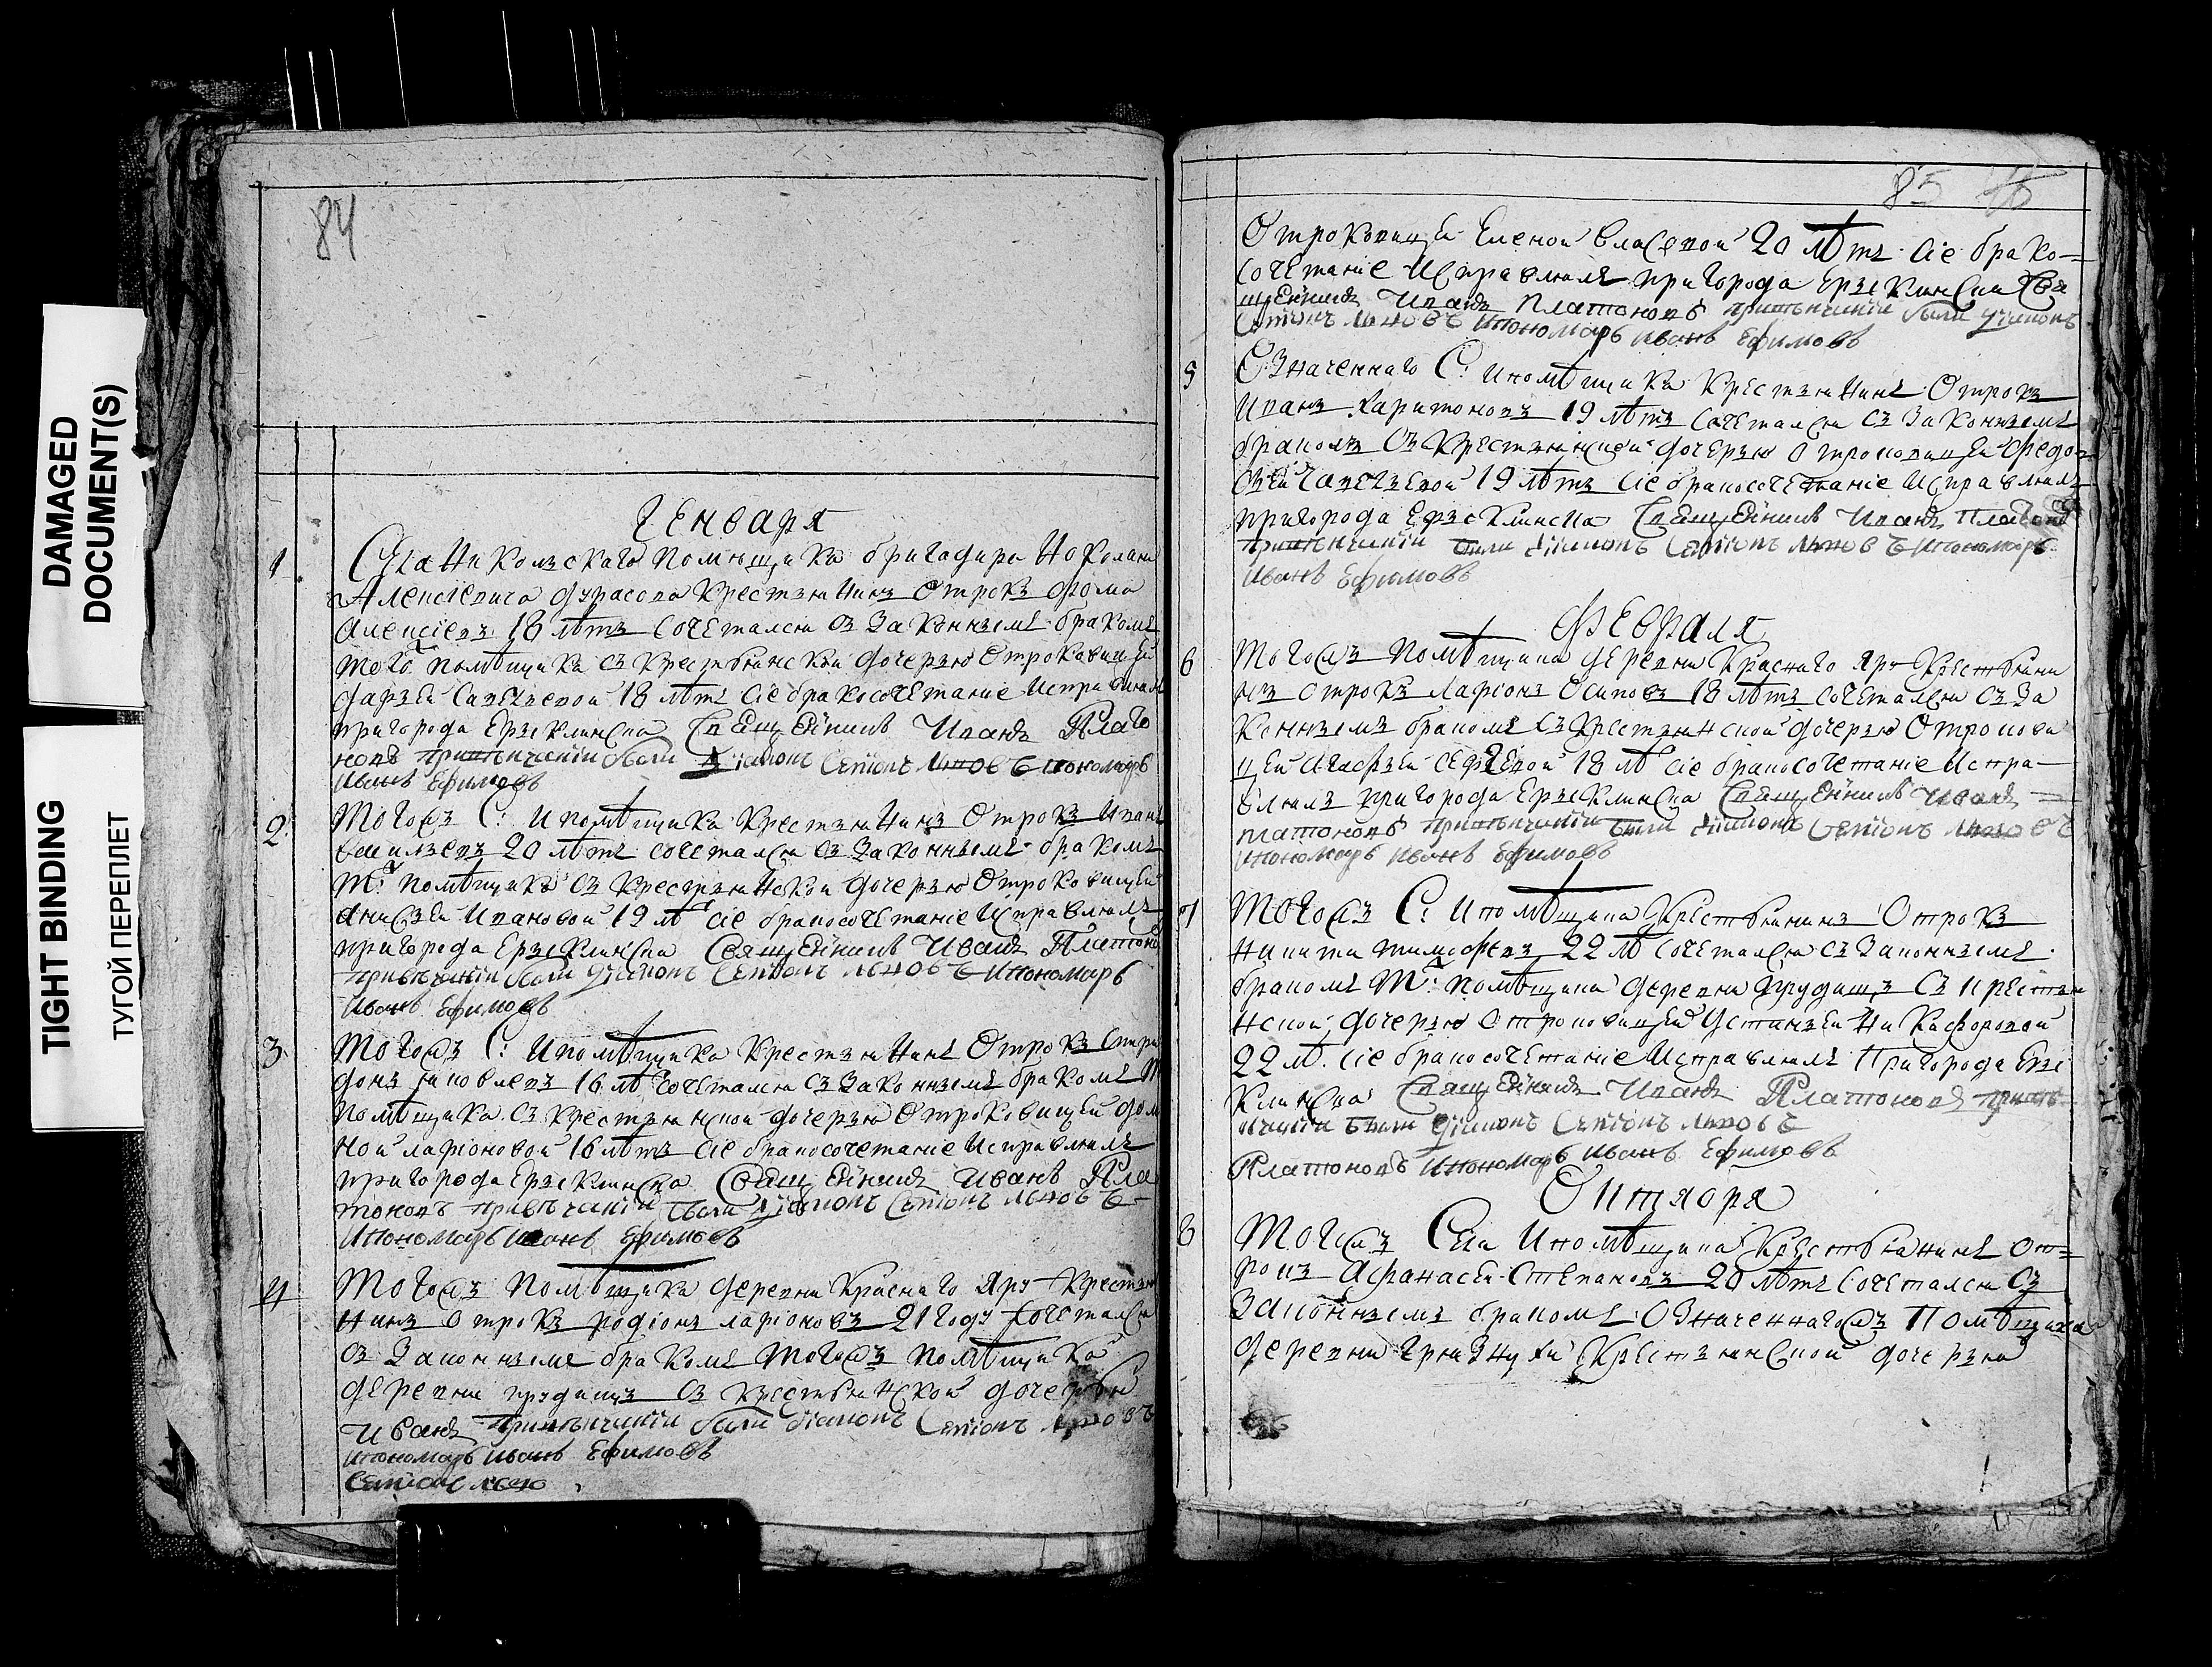 DAMAGED
DOCUMENT(S)
TIGHT BINDING
ТУГОЙ ПЕРЕПЛЕТ
84
Генваря
1
Села Никольскаго помещика бригадира Николаи
Алексіевича Дурасова крестьянинъ отрокъ Фома
Алексіевъ 18 лѣтъ сочетался съ законнымъ бракомъ
того помѣщика съ крестьянской дочерью отроковицей
Дарьей Савельевой 18 лѣтъ сіе бракосочетаніе исправлялъ
пригорода Ерыклинска Священникъ Иванъ Плато
новъ привѣнчаніи были діаконъ Семіонъ Львовъ ипономарь
Иванъ Ефимовъ
2
Тогожъ С: ипомѣщика крестьянинъ отрокъ Иванъ
Васильевъ 20 лѣтъ сочетался съ законнымъ бракомъ
т: помѣщика съ крестьянской дочерью отроковицей
Анисьей Ивановой 19 лѣ сіе бракосочетаніе исправлялъ
пригорода Ерыклинска Священникъ Иванъ Платоно
привѣнчаніи были діаконъ Семіонъ Львовъ ипономарь
Иванъ Ефимовъ
3
Тогожъ С: ипомѣщика крестьянинъ отрокъ Спири
донъ Яковлевъ 16 лѣ сочетался съ законнымъ бракомъ
помѣщика съ крестьянской дочерью отроковицей Дом
ной Ларіоновой 16 лѣтъ сіе бракосочетаніе исправлялъ
пригорода Ерыклинска Священникъ Иванъ Пла
тоновъ привѣнчаніи были діаконъ Семіонъ Львовъ
ипономарь Иванъ Ефимовъ
4
Тогожъ помѣщика деревни Краснаго Яру крестья
нинъ отрокъ Родіонъ Ларіоновъ 21 году сочетался
съ законнымъ бракомъ тогожъ помѣщика
деревни Прудищъ съ крестьянской дочерью
Иванъ привѣнчаніи были діаконъ Семіонъ Львовъ
ипономарь Иванъ Ефимовъ
Семіонъ
85
Отроковицей Еленой Власовой 20 лѣтъ сіе брако-
сочетаніе исправлялъ пригорода Ерыклинска Свя
щенникъ Иванъ Платоновъ привѣнчаніи были діаконъ
Семіонъ Львовъ ипономарь Иванъ Ефимовъ
5
Означеннаго С: ипомѣщика крестьянинъ отрокъ
Иванъ Харитоновъ 19 лѣтъ сочетался съ законнымъ
бракомъ съ крестьянской дочерью отроковицей Федо
сьей Савельевой 19 лѣтъ сіе бракосочетаніе исправлялъ
пригорода Ерыклинска Священникъ Иванъ Платоновъ
привѣнчаніи были діаконъ Семіонъ Львовъ ипономарь
Иванъ Ефимовъ
Февраля
6
Тогожъ помѣщика деревни Краснаго Яру крестьяни
нъ отрокъ Ларіонъ Осиповъ 18 лѣтъ сочетался съ за
коннымъ бракомъ съ крестьянской дочерью отрокови
цей Агафьей 18 лѣ сіе бракосочетаніе испра-
влялъ пригорода Ерыклинска Священникъ Иванъ
Платоновъ привѣнчаніи были діаконъ Семіонъ Львовъ
ипономарь Иванъ Ефимовъ
7
Тогожъ С: ипомѣщика крестьянинъ отрокъ
Никита Тимофеевъ 22 лѣ сочетался съ законнымъ
бракомъ т: помѣщика деревни Прудищъ съ крестья
нской дочерью отроковицей Устиньей Никифоровой
22 лѣ. сіе бракосочетаніе исправлялъ пригорода Еры
клинска Священникъ Иванъ Платоновъ привѣ
нчаніи были діаконъ Семіонъ Львовъ
Платоновъ ипономарь Иванъ Ефимовъ
Октября
8
Тогожъ Села ипомѣщика крестьянинъ от-
рокъ Афанасей Степановъ 20 лѣтъ сочетался съ
законнымъ бракомъ означеннагожъ помѣщика
деревни Грязнухи крестьянской дочерью